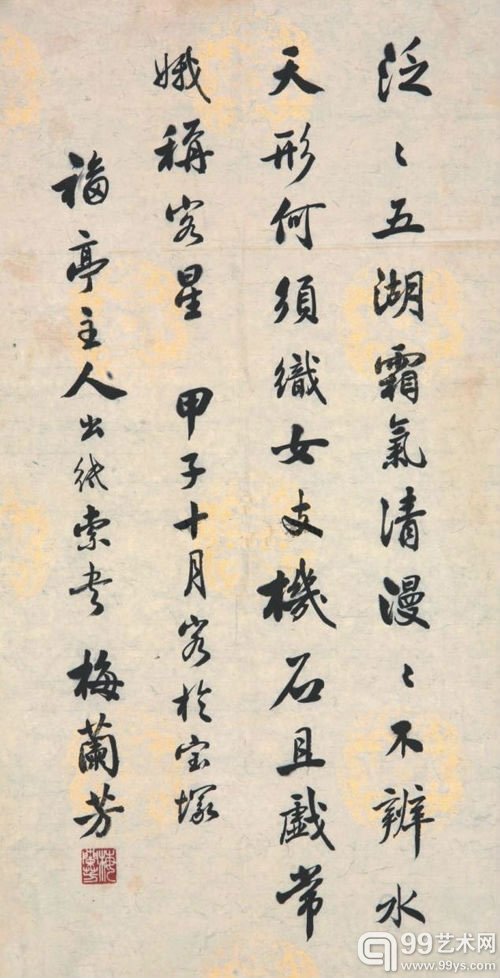 泛〻五湖霜氣清漫〻不辨水
天形何須織女支機石且戲常
娥稱客星 甲子十月客於宝塚
福亭主人出紙索書 梅蘭芳
99艺术网
www.99ys.com